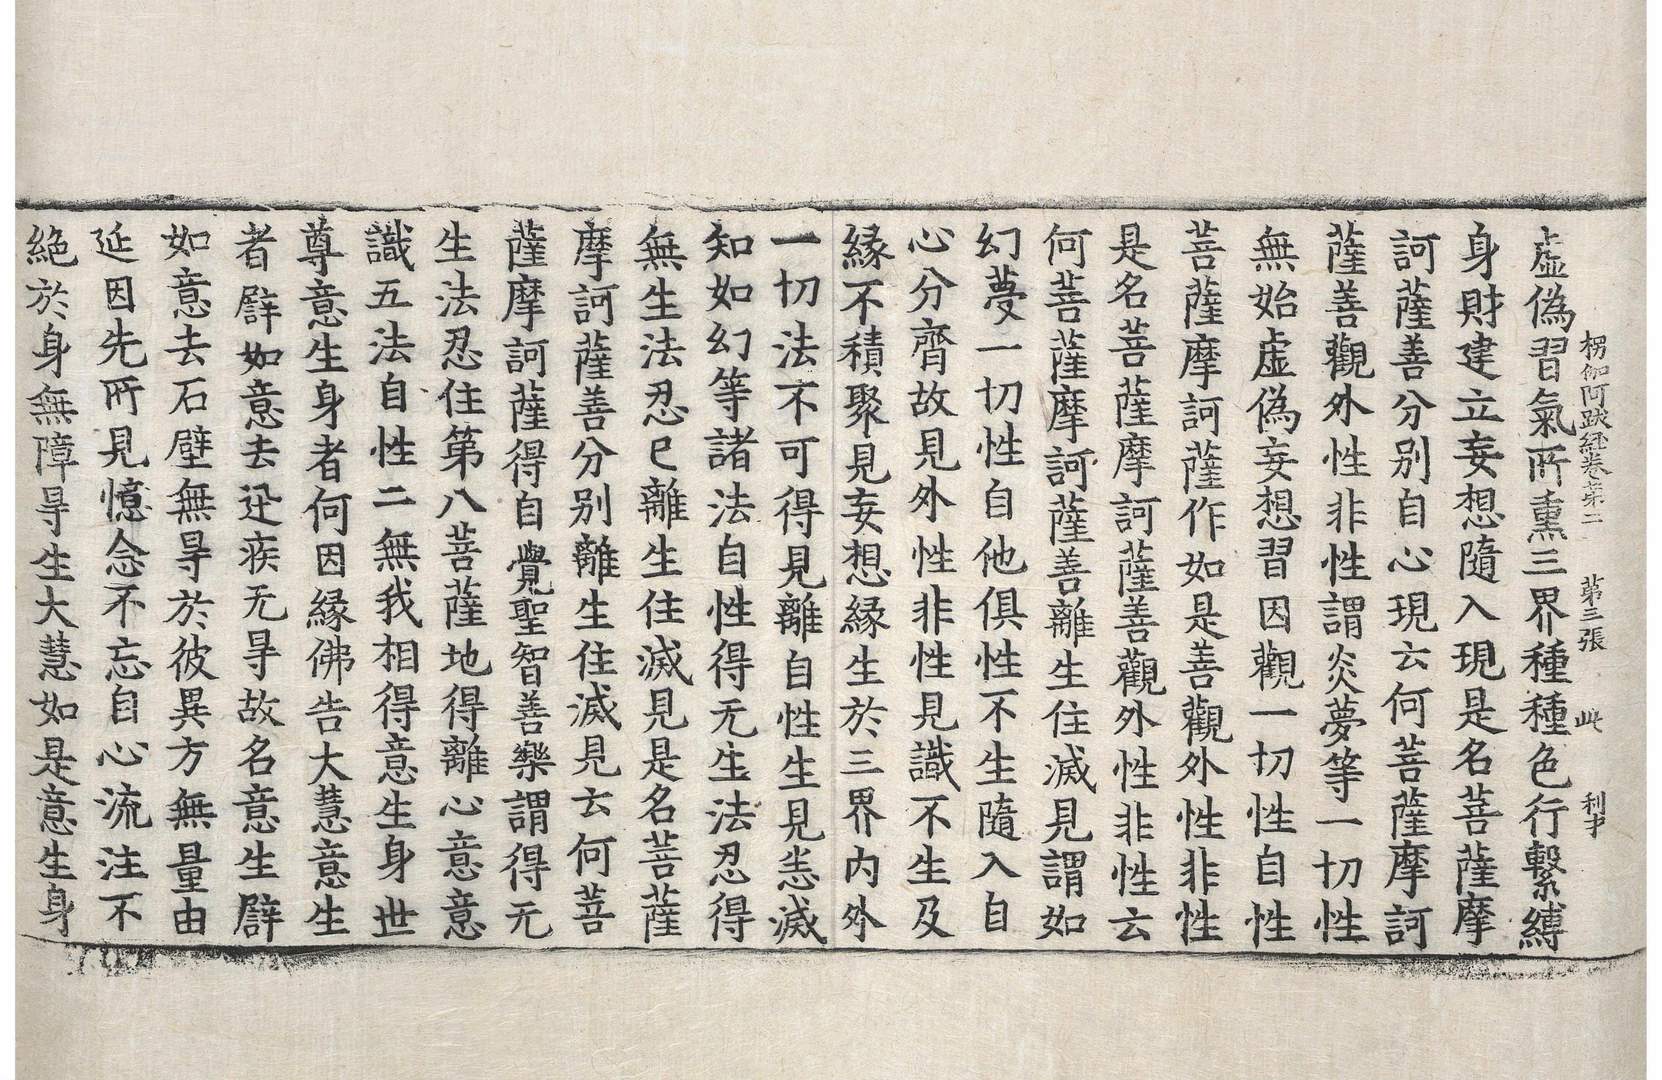 楞伽阿跋經卷第二　第三張　此　利才
虛偽習氣所熏三界種種色行繫縛
身財建立妄想隨入現是名菩薩摩
訶薩善分别自心現云何菩薩摩訶
薩善觀外性非性謂炎夢等一切性
無始虛偽妄想習因觀一切性自性
菩薩摩訶薩作如是善觀外性非性
是名菩薩摩訶薩善觀外性非性云
何菩薩摩訶薩善離生住滅見謂如
幻夢一切性自他俱性不生隨入自
心分齊故見外性非性見識不生及
緣不積聚見妄想緣生於三界内外
一切法不可得見離自性生見悉滅
知如幻等諸法自性得无生法忍得
無生法忍已離生住滅見是名菩薩
摩訶薩善分别離生住滅見云何菩
薩摩訶薩得自覺聖智善樂謂得无
生法忍住第八菩薩地得離心意意
識五法自性二無我相得意生身世
尊意生身者何因緣佛告大慧意生
者辟如意去迅疾无㝵故名意生辟
如意去石壁無㝵於彼異方無量由
延因先所見憶念不忘自心流注不
絶於身無障㝵生大慧如是意生身